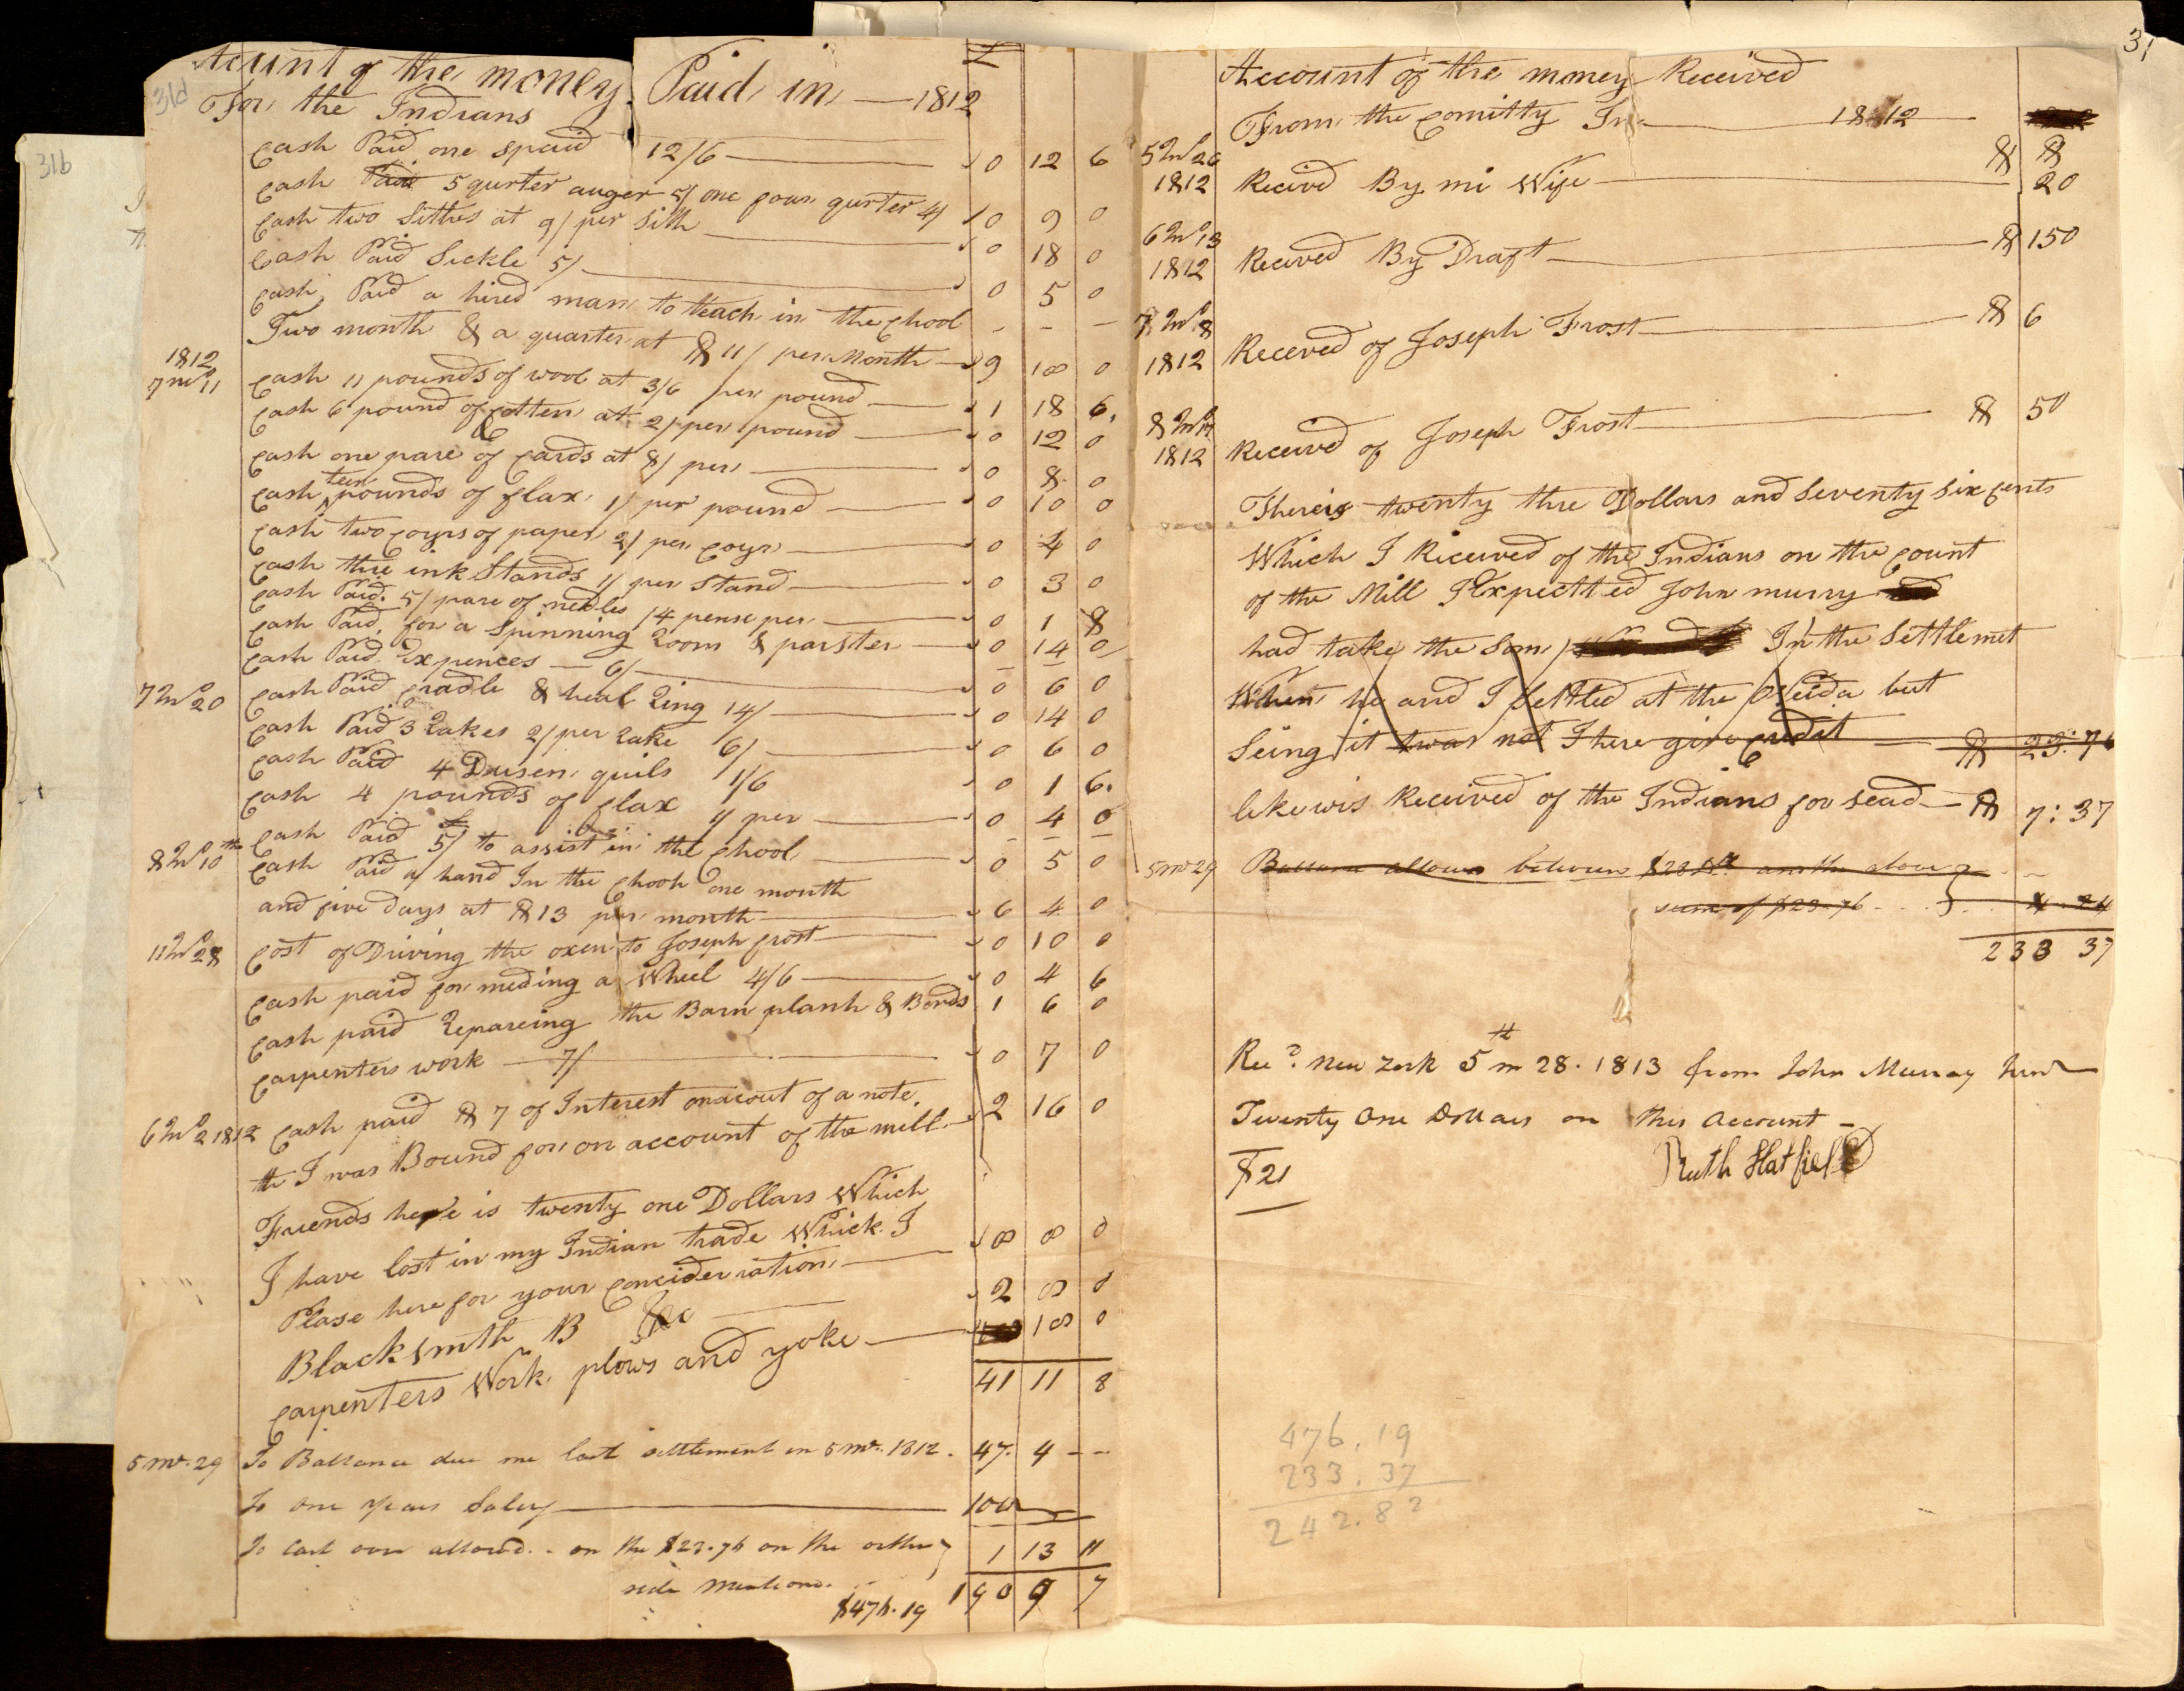 31b
31d
Account of the money Paid in — 1812
For the Indians
£
Cash Paid one spaid 12/6 — 0 12 6
Cash Paid 5 qurter auger 5/ one four qurter 4/ 0 9 0
Cash two Sithes at 9/ per Sith — 0 18 0
Cash Paid Sickle 5/ — 0 5 0
Cash Paid a hired man to teach in the chool - - -
Two month & a quarter at $ 11/ per Month — 9 18 0
1812
7 mo 11 Cash 11 pounds of wool at 3/6 per pound — 1 18 6
Cash 6 pound of Cotten at 2/ per pound — 0 12 0
Cash one pare of Cards at 8/ per — 0 8 0
Cash ten pounds of flax 1/ per pound — 0 10 0
Cash two coyrs of paper 2/ per coyr — 0 4 0
Cash thre ink Stands 1/ per Stand — 0 3 0
Cash Paid 5/ pare of nedles /4 pense per — 0 1 8
Cash Paid for a Spinning Room & parster — 0 14 0
Cash Paid Expences — 6/ — 0 6 0
7 mo 20 Cash Paid Cradle & heal Ring 14/ — 0 14 0
Cash Paid 3 Rakes 2/ per Rake 6/ — 0 6 0
Cash Paid 4 Dusen quils 1/6 0 1 6
Cash 4 pounds of flax 1/ per — 0 4 0
Cash Paid 5/ to assist in the Chool — 0 5 0
8 mo 10th Cash Paid a hand In the Chool one month
and five days at $13 per month — 6 4 0
11 mo 28 Cost of Driving the oxen to Joseph frost — 0 10 0
Cash paid for meding a Wheel 4/6 — 0 4 6
Cash paid Repareing the Barn plank & Bords 1 6 0
Carpenters work — 7/ — 0 7 0
6 mo 2 1812 Cash paid $ 7 of Interest on acout of a note
th I was Bound for on account of the mill — 2 16 0
Friends here is twenty one Dollars Which
I have lost in my Indian trade Which I
Please here for your Concideration — 8 8 0
Blacksmth B &c — 2 8 0
Carpenters Work plows and yoke — 18 0
41 11 8
5 mo. 29 To Ballance due me last settlement in 5 mo. 1812. 47. 4 - -
To one years Salery — 100
To cash over allowed on the $23.76 on the other
side mentiond. 1 13 11
$476.19 190 9 7
31
Account of the money Received
From the Comitty In — 1812 —
5 mo 26
1812 Recived By mi Wife — $ $ 20
6 mo 13
1812 Recived By Draft — $ 150
7 mo 8
1812 Receved of Joseph Frost — $ 6
8 mo
1812 Received of Joseph Frost — $ 50
There is twenty thre Dollars and Seventy Six Cents
Which I Received of the Indians on the Count
of the Mill I Expectted John murry
had take the Som In the Settlemet
When he and I Settled at the Oneida but
Seing it was not I here give Credit — $ 23:76
likewis Received of the Indians for Sead — $ 7:37
5 mo 29 Ballance allowed between and the above
sum of $23.76
233 37
Recd. New York 5th m 28. 1813 from John Murray Junr
Twenty One Dollars on this Account —
$21
Ruth Hatfield
476.19
233.37
242.82